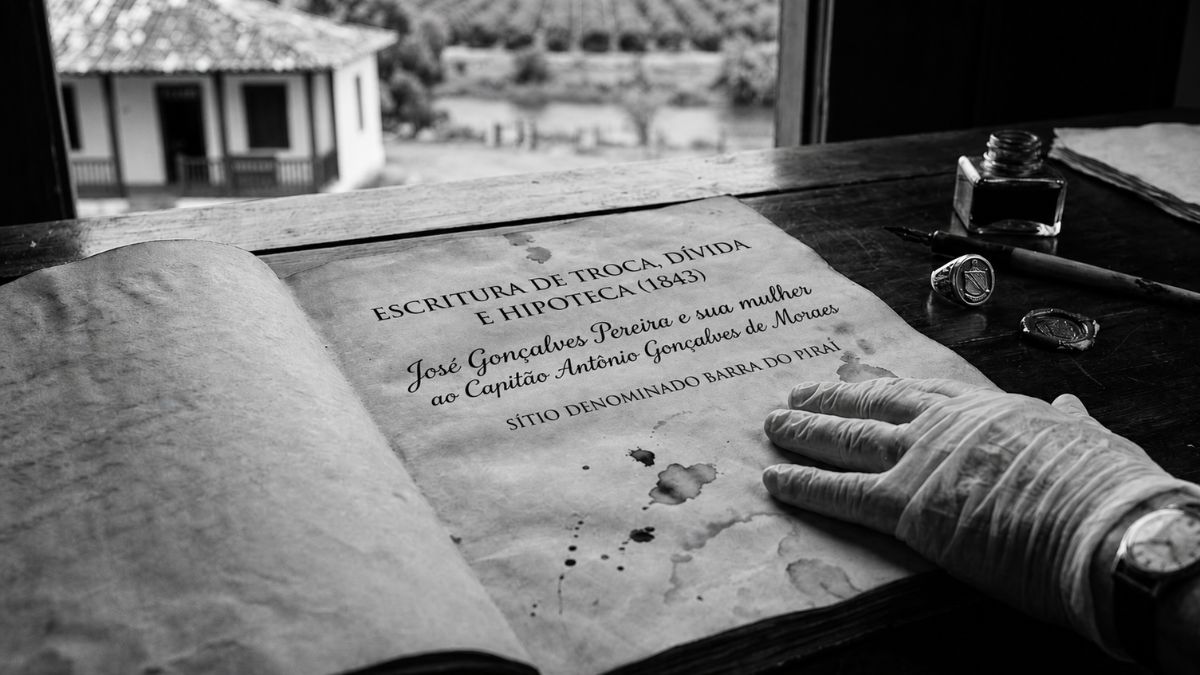 ESCRITURA DE TROCA, DÍVIDA
E HIPOTECA (1843)
José Gonçalves Pereira e sua mulher
ao Capitão Antônio Gonçalves de Moraes
SÍTIO DENOMINADO BARRA DO PIRAÍ